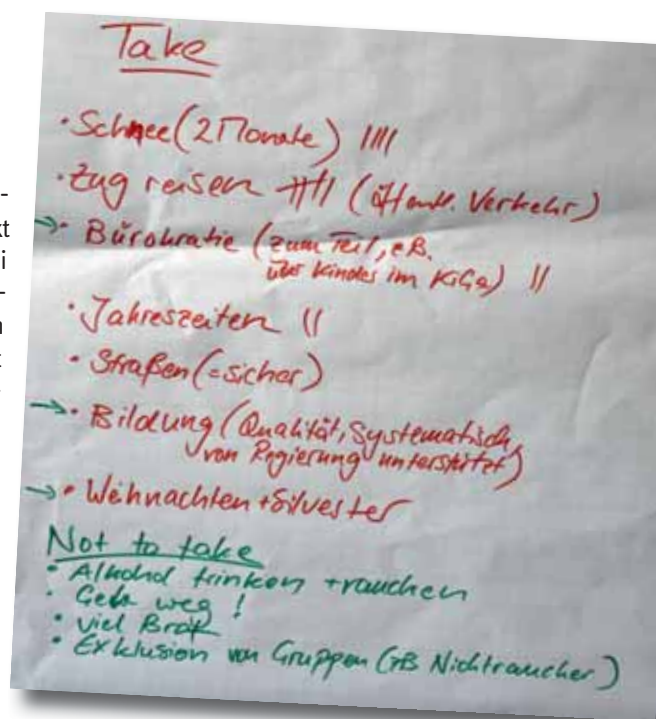 Take
· Schnee (2 Monate) ||||
· Zug reisen |||| (öffentl. Verkehr)
→ · Bürokratie (zum Teil, z.B.
über Kindes im KiGa) ||
· Jahreszeiten ||
· Straßen (= sicher)
→ · Bildung (Qualität, Systematisch,
von Regierung unterstützt)
→ · Weihnachten + Silvester
Not to take
· Alkohol trinken + rauchen
· Geh weg !
· viel Brot
· Exklusion von Gruppen (zB Nichtraucher)
-
kt
i
-